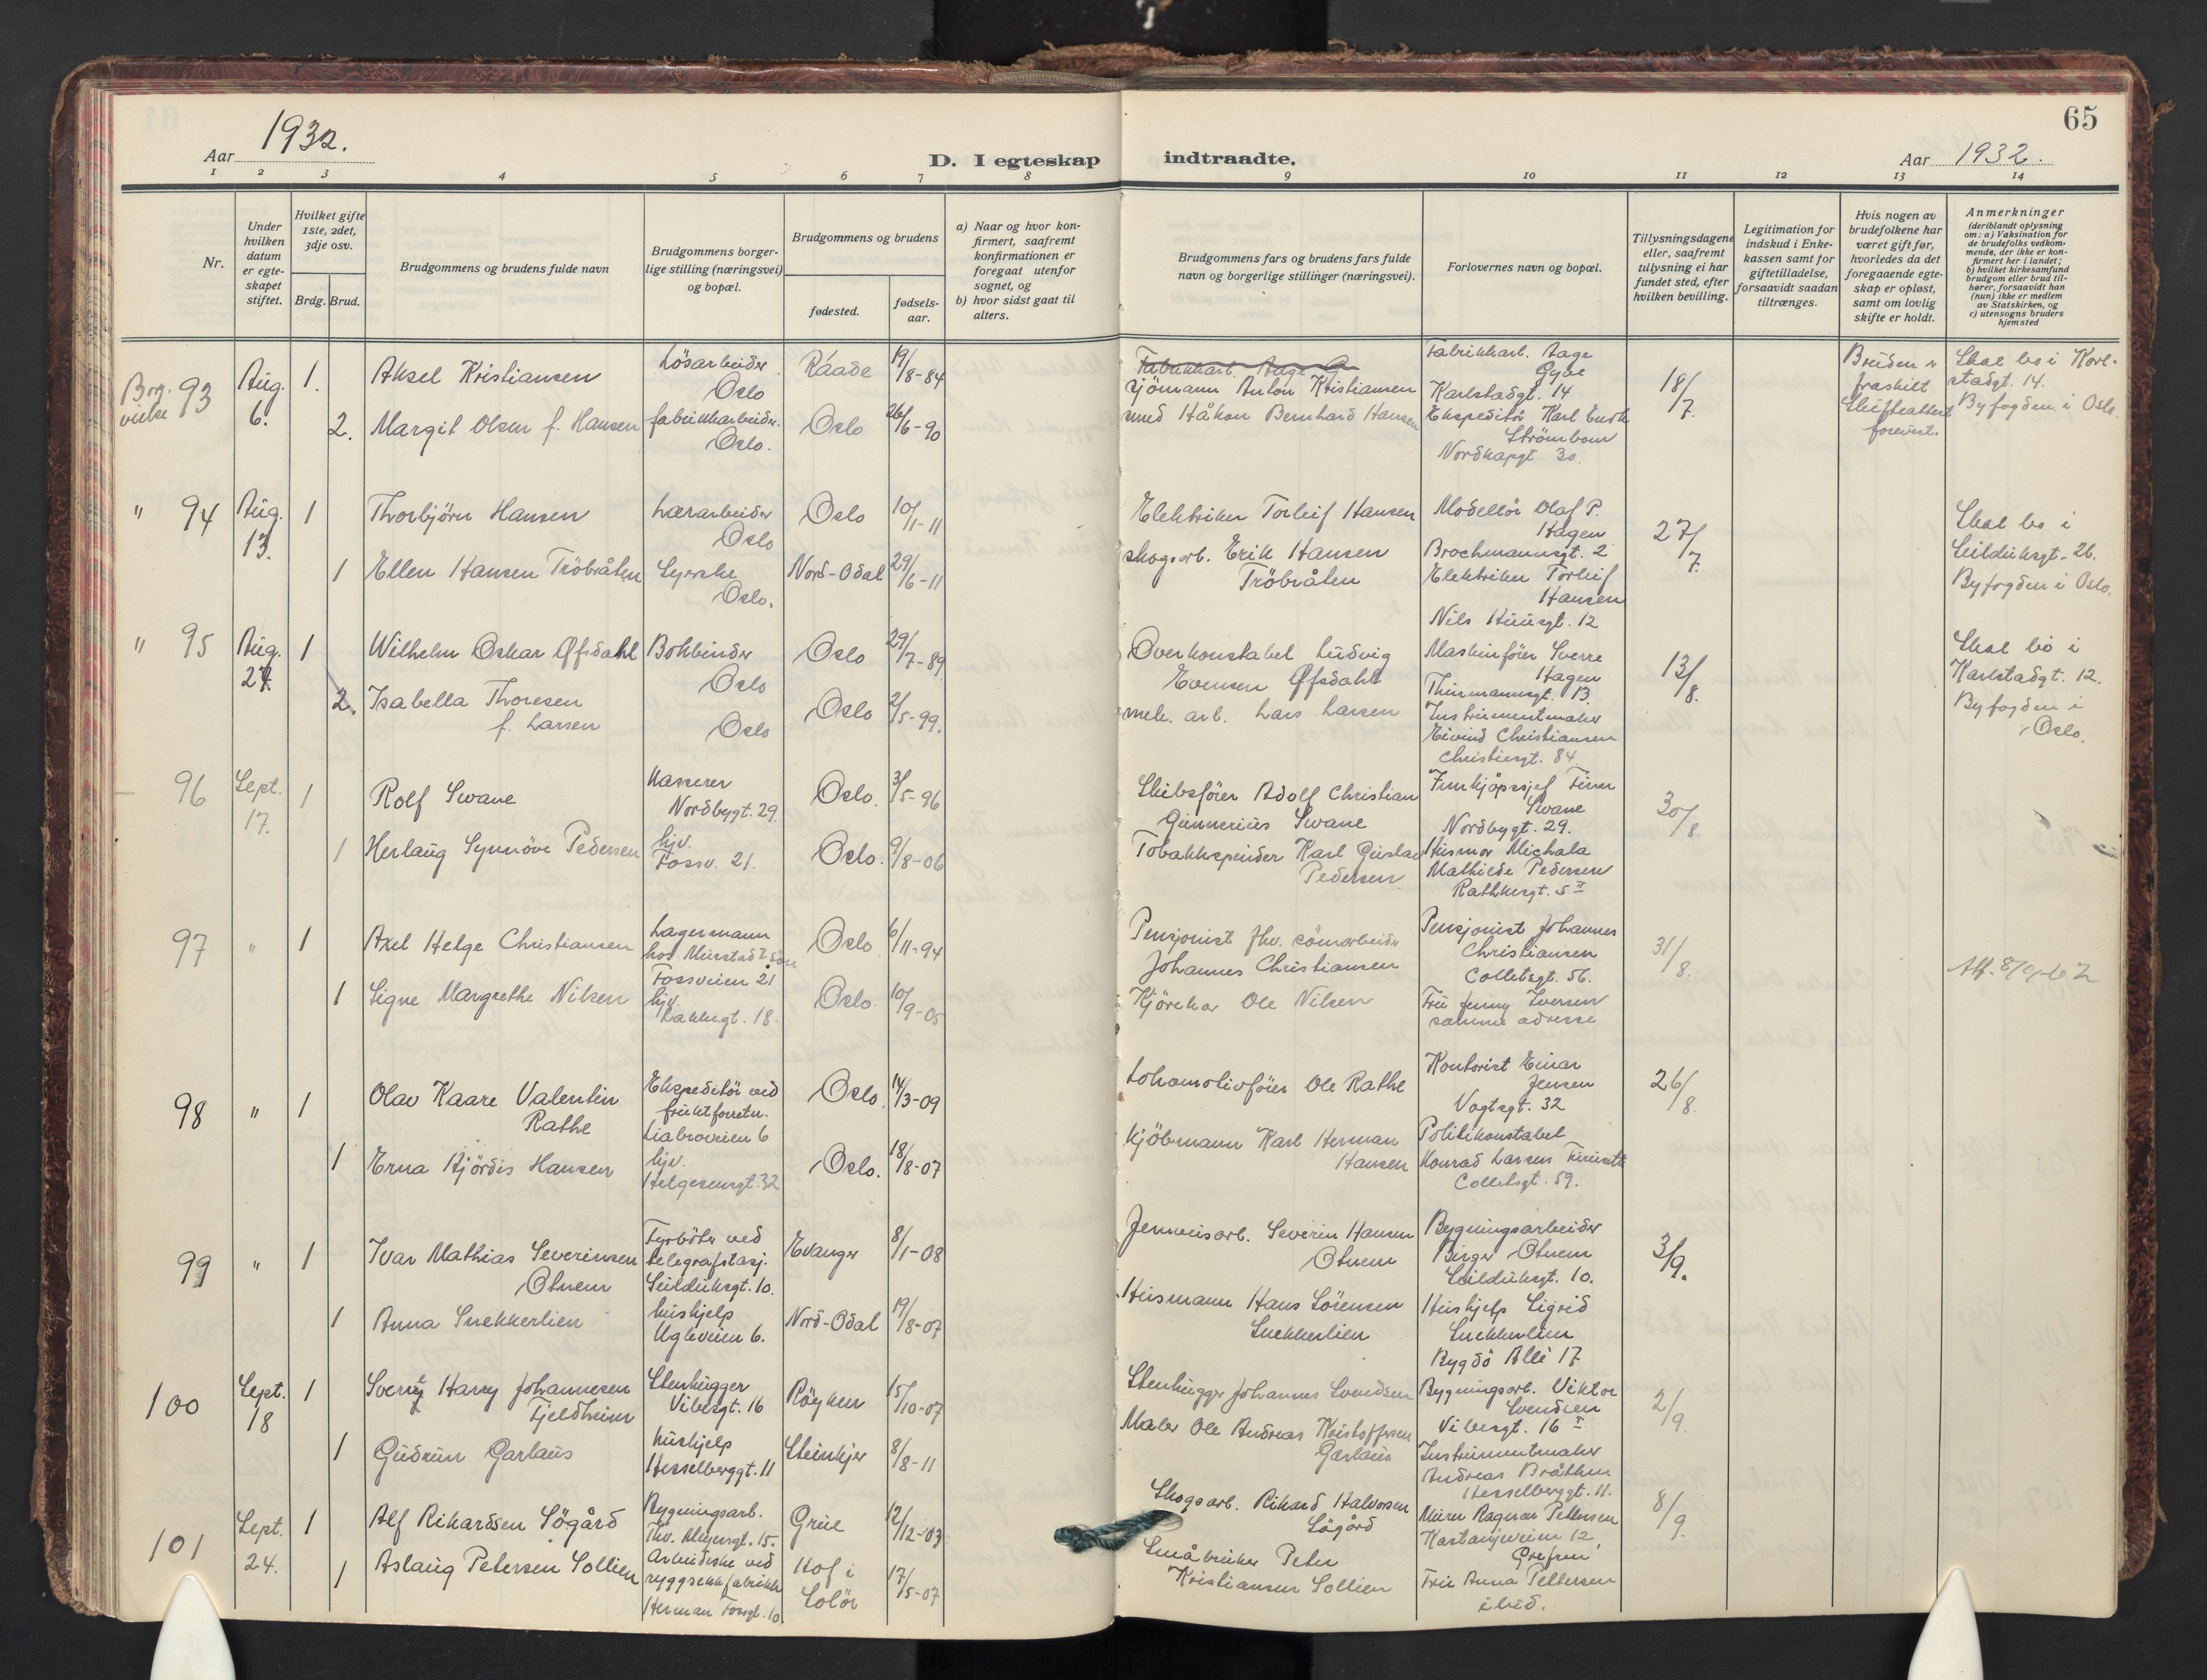 65
Aar 1932.
D. I egteskap indtraadte.
Aar 1932.
1 2 3 4 5 6 7 8 9 10 11 12 13 14
Nr.
Under hvilken datum er egte-skapet stiftet.
Hvilket gifte 1ste, 2det, 3dje osv.
Brdg. Brud.
Brudgommens og brudens fulde navn
Brudgommens borger-lige stilling (næringsvei) og bopæl.
Brudgommens og brudens
fødested.
fødsels-aar.
a) Naar og hvor kon-firmert, saafremt konfirmationen er foregaat utenfor sognet, og
b) hvor sidst gaat til alters.
Brudgommens fars og brudens fars fulde navn og borgerlige stillinger (næringsvei).
Forlovernes navn og bopæl.
Tillysningsdagene eller, saafremt tillysning ei har fundet sted, efter hvilken bevilling.
Legitimation for indskud i Enke-kassen samt for giftetilladelse, forsaavidt saadan tiltrænges.
Hvis nogen av brudefolkene har været gift før, hvorledes da det foregaaende egte-skap er opløst, samt om lovlig skifte er holdt.
Anmerkninger
(deriblandt oplysning om: a) Vaksination for de brudefolks vedkom-mende, der ikke er kon-firmert her i landet; b) hvilket kirkesamfund brudgom eller brud til-hører, forsaavidt han (hun) ikke er medlem av Statskirken, og c) utensogns bruders hjemsted
Borg. vielse 93
Aug. 6.
1.
Aksel Kristiansen
Løsarbeider Oslo
Raade
19/8-84
Fabrikkarb. Aage G
sjömann Anton Kristiansen
Fabrikkarb. Aage Gyve
Karlstadgt. 14
18/7.
Bruden er fraskilt
Skifteattest forevist.
Skal bo i Karl-stadgt. 14.
Byfogden i Oslo.
2.
Margit Olsen f. Hansen
fabrikkarbeider. Oslo.
Oslo
26/6-90
smed Håkon Bernhard Hansen
Ekspeditør Karl
Strömbom
Nordkapgt. 30.
" 94
Aug. 13.
1
Thorbjörn Hansen
Lærarbeider Oslo
Oslo
10/1-11
Elektriker Torleif Hansen
Modellör Olaf P. Hagen
Brochmannsgt. 2
27/7.
Skal bo i Seilduksgt. 26.
Byfogden i Oslo.
1
Ellen Hansen Tröbråten
Syerske Oslo.
Nord-Odal
29/6-11
skogsarb. Erik Hansen Tröbråten
Elektriker Torleif Hansen
Nils Huusgt. 12
" 95
Aug. 27.
1
Wilhelm Oskar Øfsdahl
Bokbinder Oslo
Oslo
29/7-89
Overkonstabel Ludvig Evensen Øfsdahl
Maskinfører Sverre Hagen
Thurmannsgt. 13.
13/8.
Skal bo i Karlstadgt. 12.
Byfogden i Oslo.
2.
Isabella Thoresen f. Larsen
Oslo
Oslo
2/5-99.
mek. arb. Lars Larsen
Instrumentmaker Eivind Christiansen
Christiesgt. 84
96
Sept. 17.
1
Rolf Swane
Kasserer
Nordbygt. 29.
Oslo.
3/5-96
Skibsfører Adolf Christian Gunnerius Swane
Innkjöpssjef Finn Swane
Nordbygt. 29.
30/8.
1
Herlaug Synnöve Pedersen
hjv.
Fossv. 21.
Oslo.
9/8-06
Tobakkspinder Karl Gustav Pedersen
Husmor Michala Mathilde Pedersen
Rathkesgt. 5 II
97
"
1
Axel Helge Christiansen
Lagermann
Fossveien 21
Oslo
6/11-94
Pensjonist fhv. sömarbeider
Johannes Christiansen
Pensjonist Johannes Christiansen
Colletsgt. 56.
31/8.
1
Signe Margrethe Nilsen
hjv.
Lakkegt. 18.
Oslo.
10/9-05
Kjörekar Ole Nilsen
Fru Jenny Iversen
samme adresse
98
"
1
Olav Kaare Valentin Rathe
Ekspeditör ved fruktforretn.
Liabroveien 6
Oslo.
14/3-09
Lokomotivfører Ole Rathe
Kontorist Einar Jensen
Vogtsgt. 32
26/8.
1
Erna Hjördis Hansen
hjv.
Helgesensgt. 32
Oslo.
18/8-07
Kjöbmann Karl Herman Hansen
Politikonstabel Konrad Larsen
Colletsgt. 59.
99
"
1
Ivar Mathias Severinsen Otnem
Fyrböter ved telegrafstasj.
Seilduksgt. 10.
Evanger
8/1-08
Jernveisarb. Severin Hansen Otnem
Bygningsarbeider Birger Otnem
Seilduksgt. 10.
3/9.
1
Anna Snekkerlien
hushjelp
Ugleveien 6.
Nord-Odal
19/8-07
Husmann Hans Sörensen Snekkerlien
Hushjelp Sigrid Snekkerlien
Bygdö Allé 17
100
Sept. 18
1
Sverre Harry Johannesen Fjeldheim
Stenhugger
Vibesgt. 16
Röyken
15/10-07
Stenhugger Johannes Svendsen
Bygningsarb. Viktor Svendsen
Vibesgt. 16 I
2/9.
1
Gudrun Garlaus
hushjelp
Hesselberggt. 11
Steinkjer
8/8-11
Maler Ole Andreas Kristoffersen Garlaus
Instrumentmaker Andreas Bråthen
Hesselberggt. 11.
101
Sept. 24.
1
Alf Rikardsen Sögård
Bygningsarb.
Thv. Meyersgt. 15.
Grue
12/12-03
Skogsarb. Rikard Halvorsen Sögård
Murer Ragnar Pettersen
Kastanjeveien 12, Grefsen
8/9.
1
Aslaug Petersen Sollien
Arbeiderske ved ryggsekkfabrikk
Herman Fossgt. 10
Hof i Solör
17/5-07
Småbruker Peter Kristiansen Sollien
Fru Anna Pettersen
ibid.